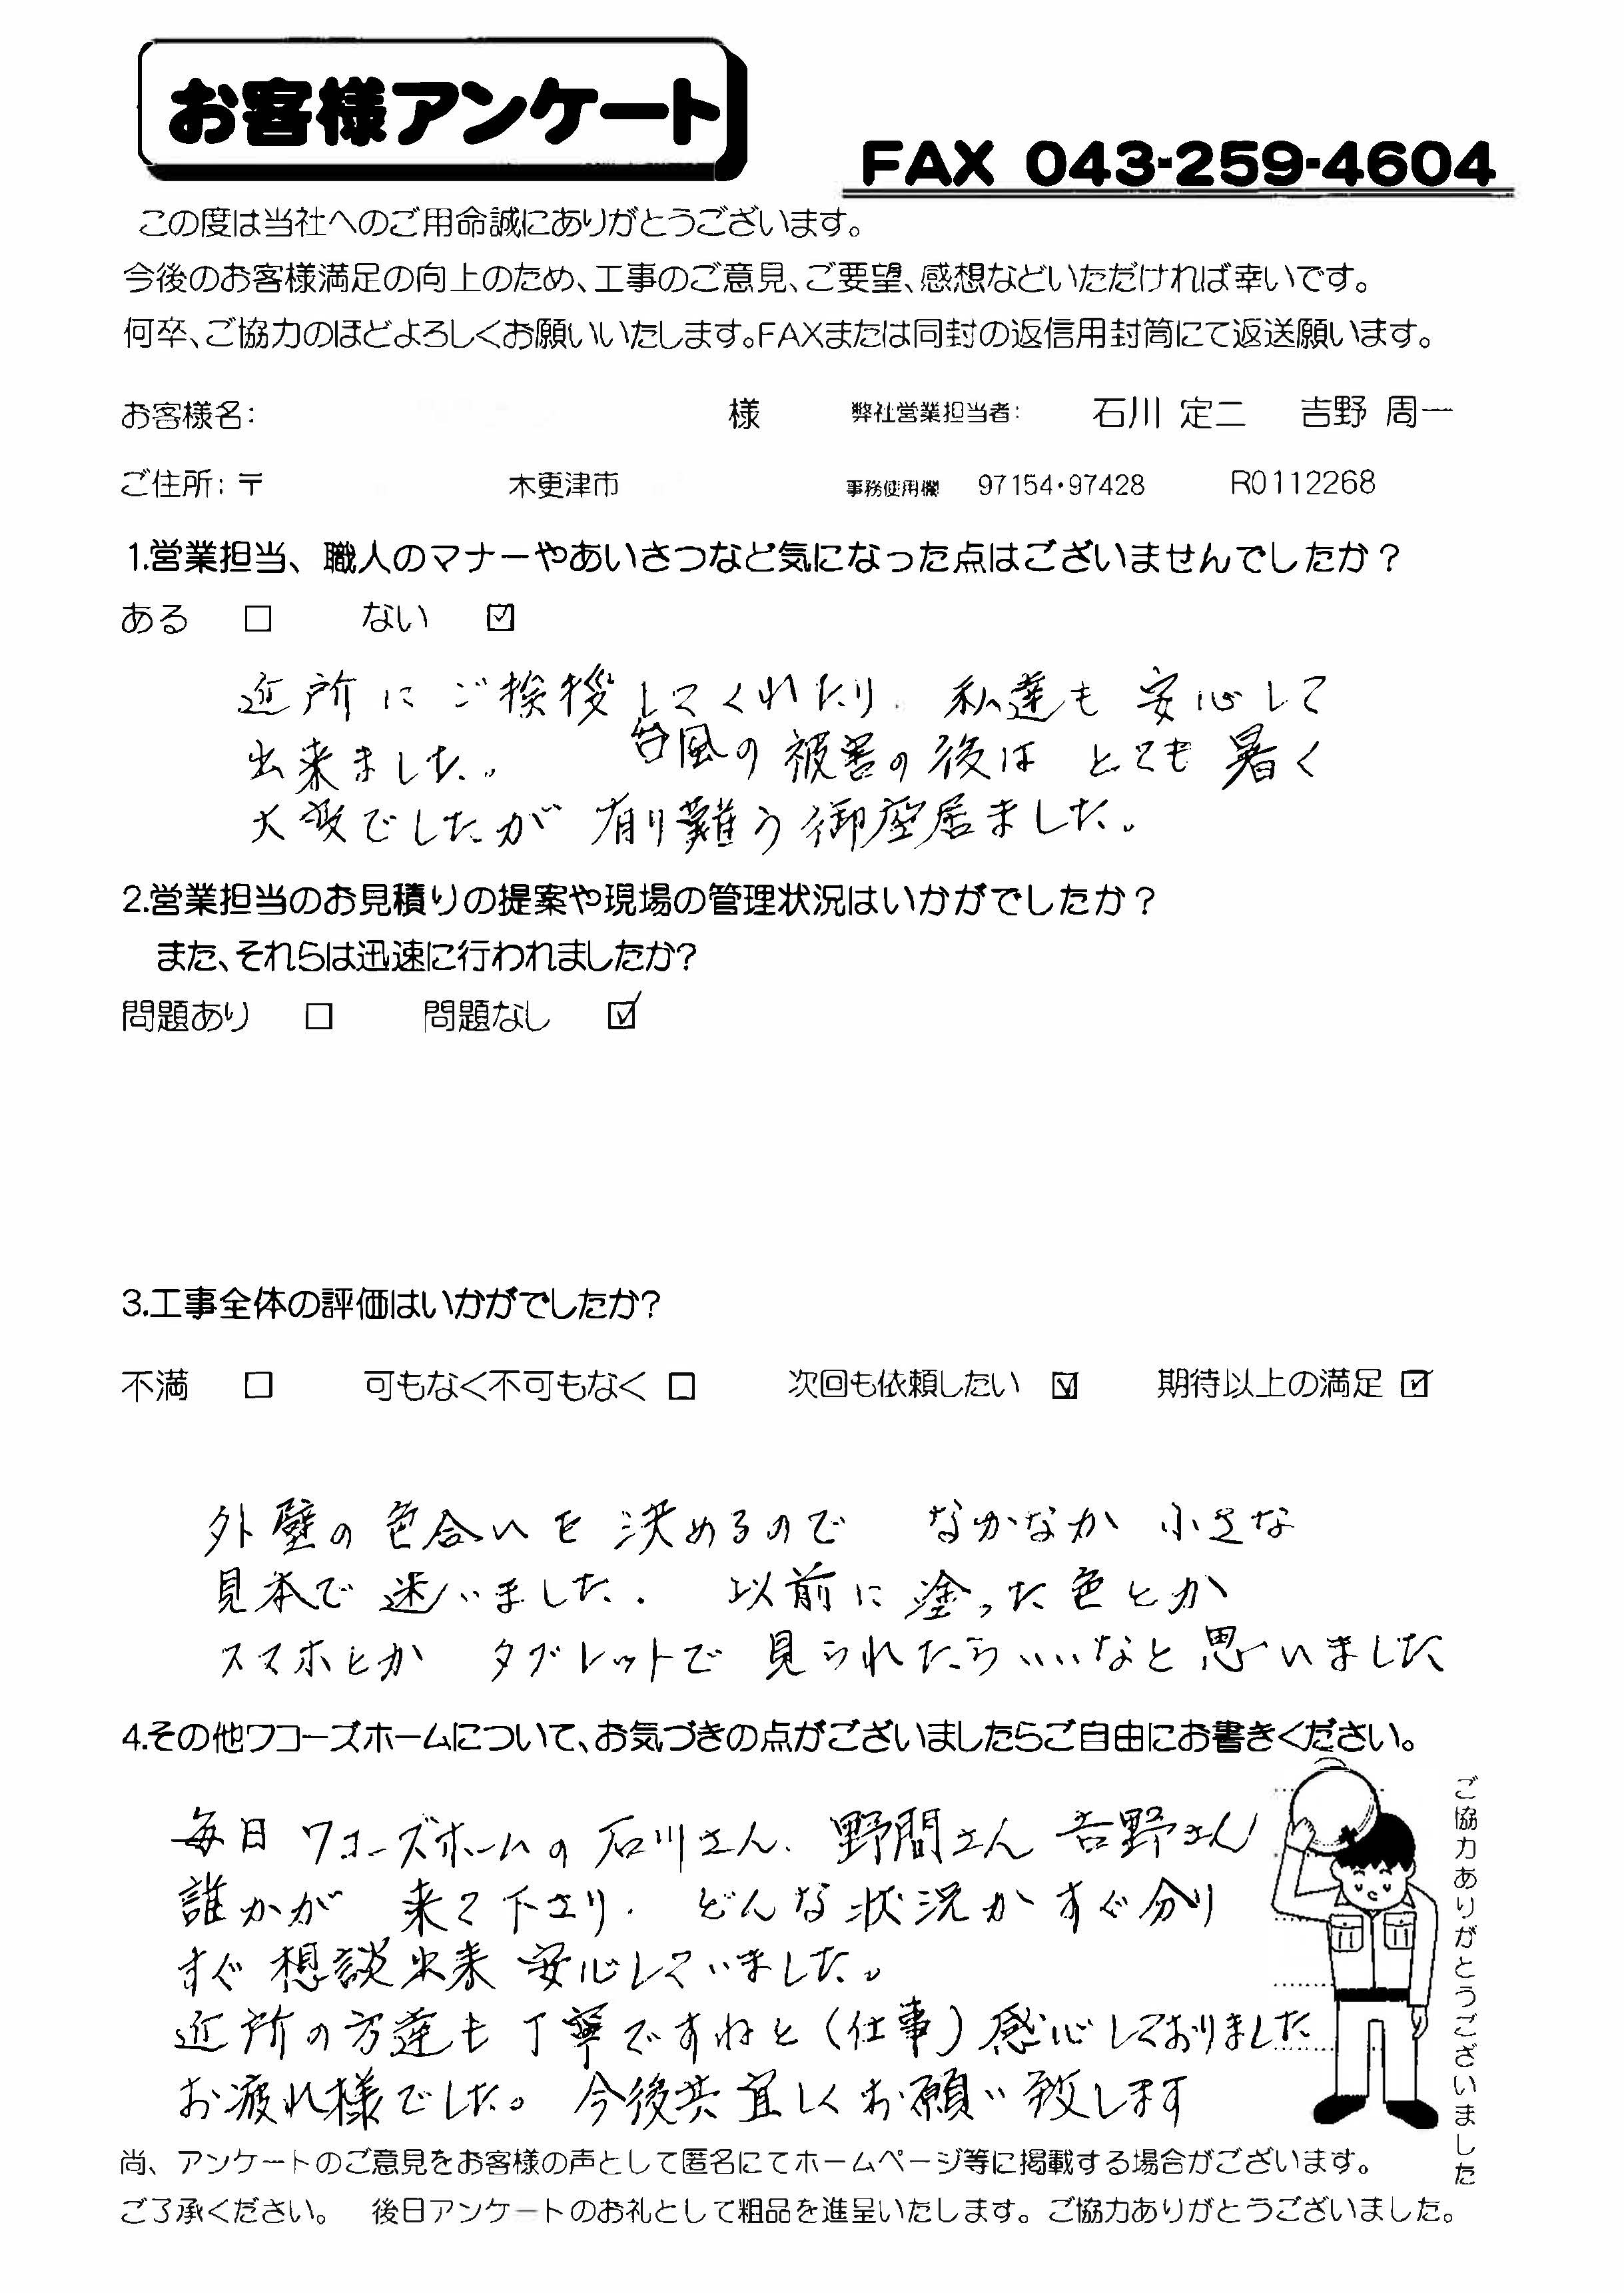 お客様アンケート
FAX 043-259-4604
この度は当社へのご用命誠にありがとうございます。
今後のお客様満足の向上のため、工事のご意見、ご要望、感想などいただければ幸いです。
何卒、ご協力のほどよろしくお願いいたします。FAXまたは同封の返信用封筒にて返送願います。
お客様名: 様 弊社営業担当者: 石川 定二 吉野 周一
ご住所:〒 木更津市 事務使用欄 97154・97428 R0112268
1.営業担当、職人のマナーやあいさつなど気になった点はございませんでしたか？
ある □ ない ☑
近所に ご挨拶してくれたり. 私達も 安心して
出来ました。 台風の被害の後は とても 暑く
大変でしたが 有り難う御座居ました。
2.営業担当のお見積りの提案や現場の管理状況はいかがでしたか？
また、それらは迅速に行われましたか?
問題あり □ 問題なし ☑
3.工事全体の評価はいかがでしたか?
不満 □ 可もなく不可もなく □ 次回も依頼したい ☑ 期待以上の満足 ☑
外壁の色合いを決めるので なかなか 小さな
見本で 迷いました. 以前に塗った色とか
スマホとか タブレットで 見られたらいいなと思いました
4.その他ワコーズホームについて、お気づきの点がございましたらご自由にお書きください。
毎日 ワコーズホームの石川さん. 野間さん 吉野さん
誰かが 来て下さり. どんな状況かすぐ分り
すぐ 想談出来 安心していました。
近所の方達も 丁寧ですねと(仕事)感心しておりました
お疲れ様でした。 今後共宜しくお願い致します
ご協力ありがとうございました
尚、アンケートのご意見をお客様の声として匿名にてホームページ等に掲載する場合がございます。
ご了承ください。 後日アンケートのお礼として粗品を進呈いたします。ご協力ありがとうございました。